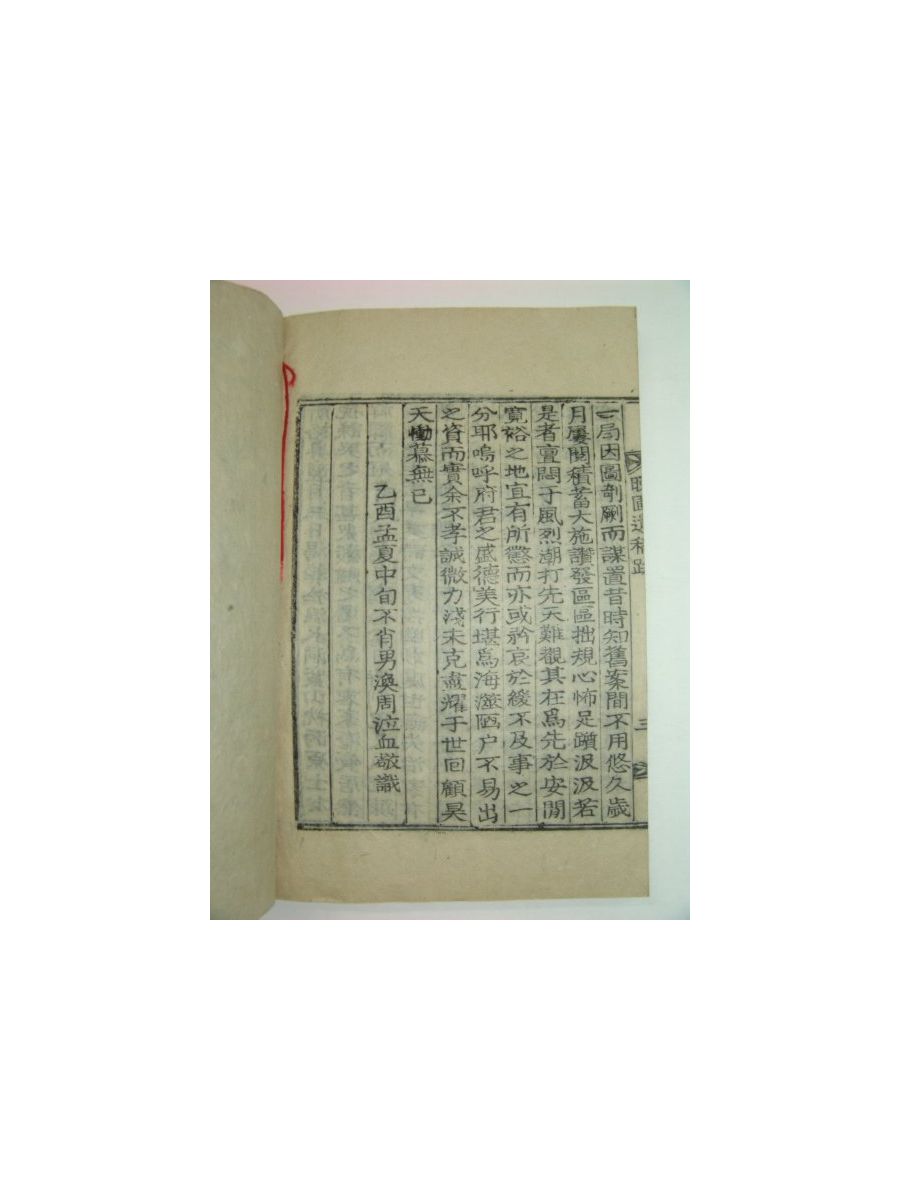 晩圃遺稿跋 三
一局因圖剞劂而謀置昔時知舊案間不用悠久歲
月屢閱積蓄大施讚發區區拙規心怖足躓汲汲若
是者亶悶于風烈潮打先天難觀其在爲先於安閒
寬裕之地宜有所懲而亦或矜哀於緩不及事之一
分耶嗚呼府君之盛德美行堪爲海滋陋户不易出
之資而實余不孝誠微力淺未克盡耀于世回顧昊
天慟慕無已
乙酉孟夏中旬不肖男渙周泣血敬識